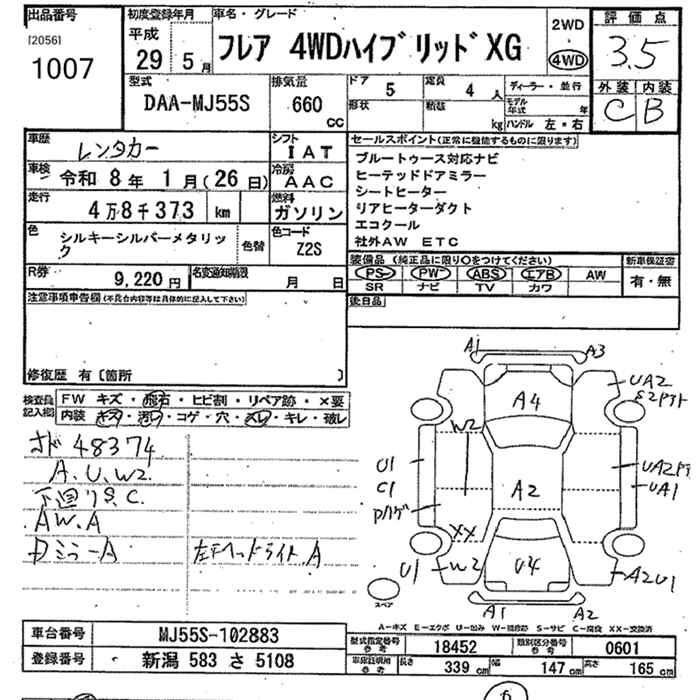 出品番号
[2056]
1007
初度登録年月
平成
29年 5月
車名・グレード
フレア 4WDハイブリッドXG
2WD
・
4WD
評価点
3.5
外装 内装
C B
型式
DAA-MJ55S
排気量
660
cc
ドア
5
定員
4 人
形状
積載
kg
ディーラー・並行
モデル年式 年
ハンドル 左・右
車歴
レンタカー
シフト
IAT
車検
令和 8年 1月(26日)
冷房
AAC
走行
4万8千373 km
燃料
ガソリン
色
シルキーシルバーメタリック
色替
色コード
Z2S
R券
9,220円
名変通知期限
月 日
セールスポイント(正常に機能するものに限ります)
ブルートゥース対応ナビ
ヒーテッドドアミラー
シートヒーター
リアヒーターダクト
エコクール
社外AW ETC
装備品 (純正品に限り○をつけてください)
PS PW ABS エアB AW
SR ナビ TV カワ
新車保証書
有・無
後日品
注意事項申告欄(不具合内容等は具体的に記入して下さい)
修復歴 有〔箇所 〕
検査員記入欄
FW キズ・飛石・ヒビ割・リペア跡・×要
内装 キズ・汚れ・コゲ・穴・スレ・キレ・破レ
48374
A.U.W2.
下回りS.C.
AW.A
Dミラ-A
左右ヘッドライトA
A1
A3
A4
UA2
W2
U1
C1
A2
UA1
XX
U1
W2
U4
A2U1
A1
A2
スペア
A-キズ E-エクボ U-凹み W-補修跡 S-サビ C-腐食 XX-交換済
車台番号
MJ55S-102883
登録番号
新潟 583 さ 5108
型式指定番号
参考
18452
類別区分番号
参考
0601
車体証明用
参考
長さ 339 cm
幅 147 cm
高さ 165 cm